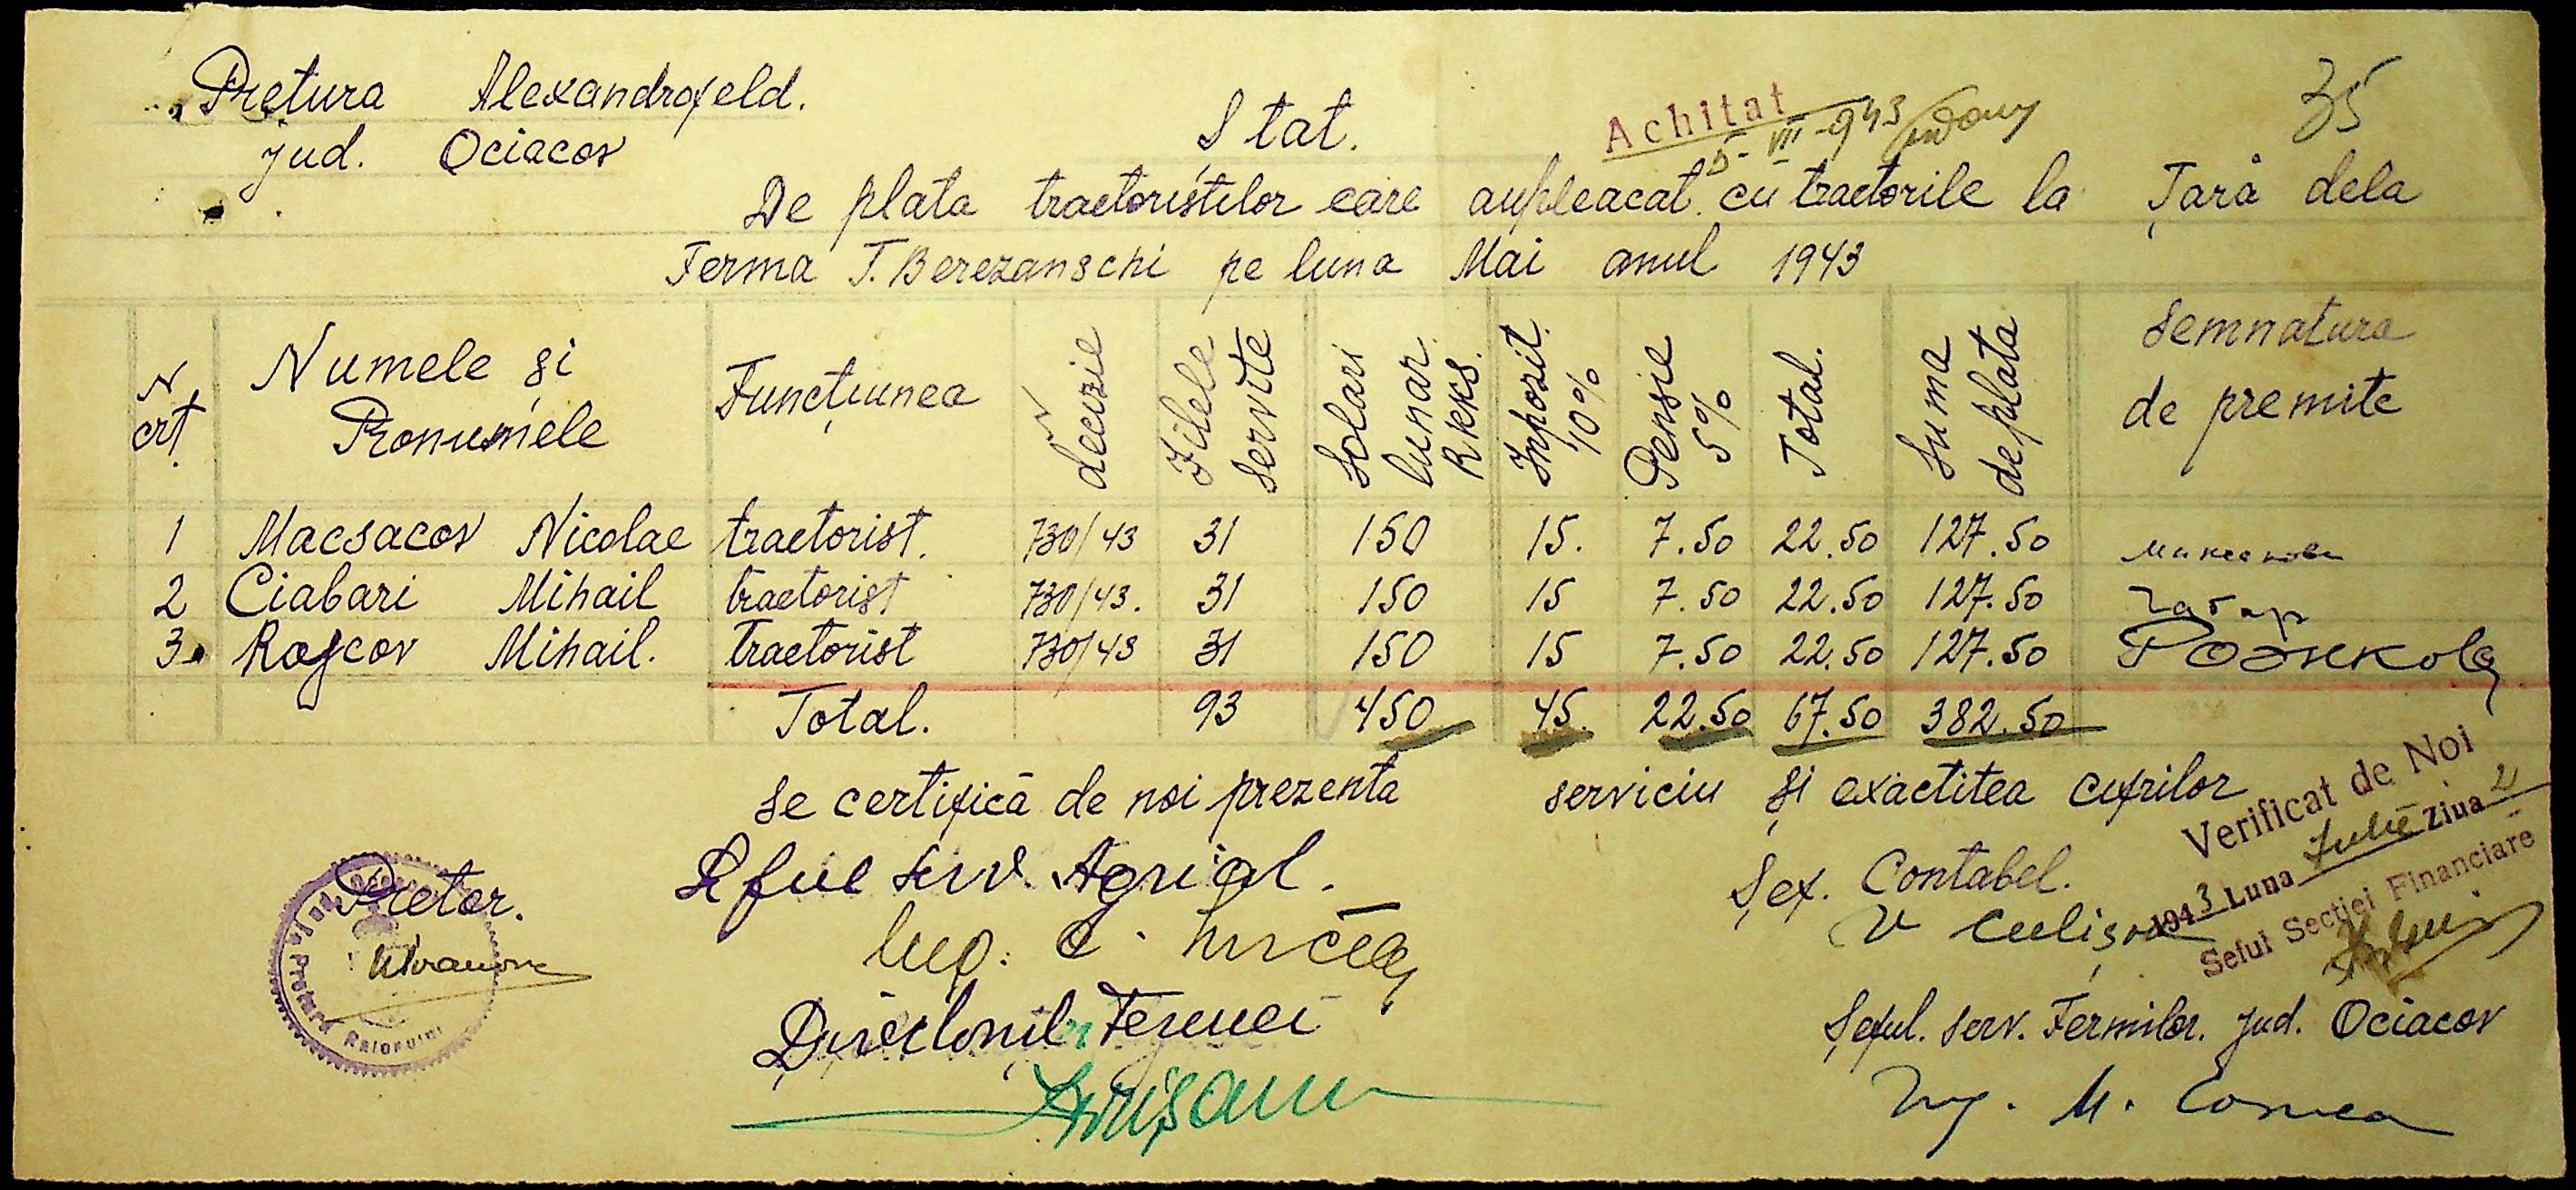 Pretura Alexandrofeld.
jud. Ociacov
Stat.
Achitat
5- VII -943
35
De plata tractoriștilor care au pleacat cu tractorile la Țară dela
Ferma T. Berezanschi pe luna Mai anul 1943
N crt. Numele și Pronumele Funcțiunea N decizie Zilele servite Solari lunar. Rkks. Inpozit. 10% Pensie 5% Total. Suma de plata Semnatura de premite
1 Macsacov Nicolae tractorist. 730/43 31 150 15. 7.50 22.50 127.50
2 Ciabari Mihail tractorist 730/43. 31 150 15 7.50 22.50 127.50 Чабар
3. Rojcov Mihail. tractorist 730/43 31 150 15 7.50 22.50 127.50 Рожков
Total. 93 450 45. 22.50 67.50 382.50
Se certifică de noi prezenta serviciu și exactitea cifrilor
Verificat de Noi
1943 Luna Iulie Ziua 2
Șeful Secției Financiare
Pretor.
Pretura Raionului
Șeful serv. Agricol.
Ing. C.
Șef. Contabel.
V
Directorul Fermei
Șeful. serv. Fermilor. jud. Ociacov
Ing. M.